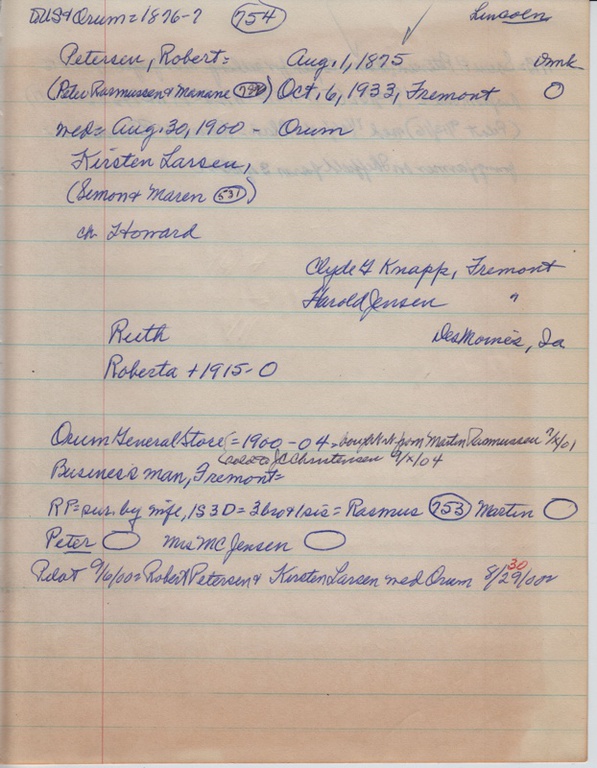 US & Orum = 1876-7 754 Lincoln
Petersen, Robert = Aug. 1, 1875 Dmk
(Peter Rasmussen & Mariane) Oct. 6, 1933, Fremont O
med = Aug. 30, 1900 - Orum
Kirsten Larsen,
(Simon & Maren 531)
ch Howard
Clyde F Knapp, Fremont
Harold Jensen "
Ruth Des Moines, Ia
Roberta + 1915 - O
Orum General Store = 1900-04 - bought int. from Martin Rasmussen 9/x/01
(sold to JC Christensen 9/x/04
Business man, Fremont =
RP = sur. by wife, 1S 3D = 3 bro & 1 sis = Rasmus 753 Martin
Peter Mrs MC Jensen
Pilot 9/6/00 = Robert Petersen & Kirsten Larsen med Orum 8/29/00 30